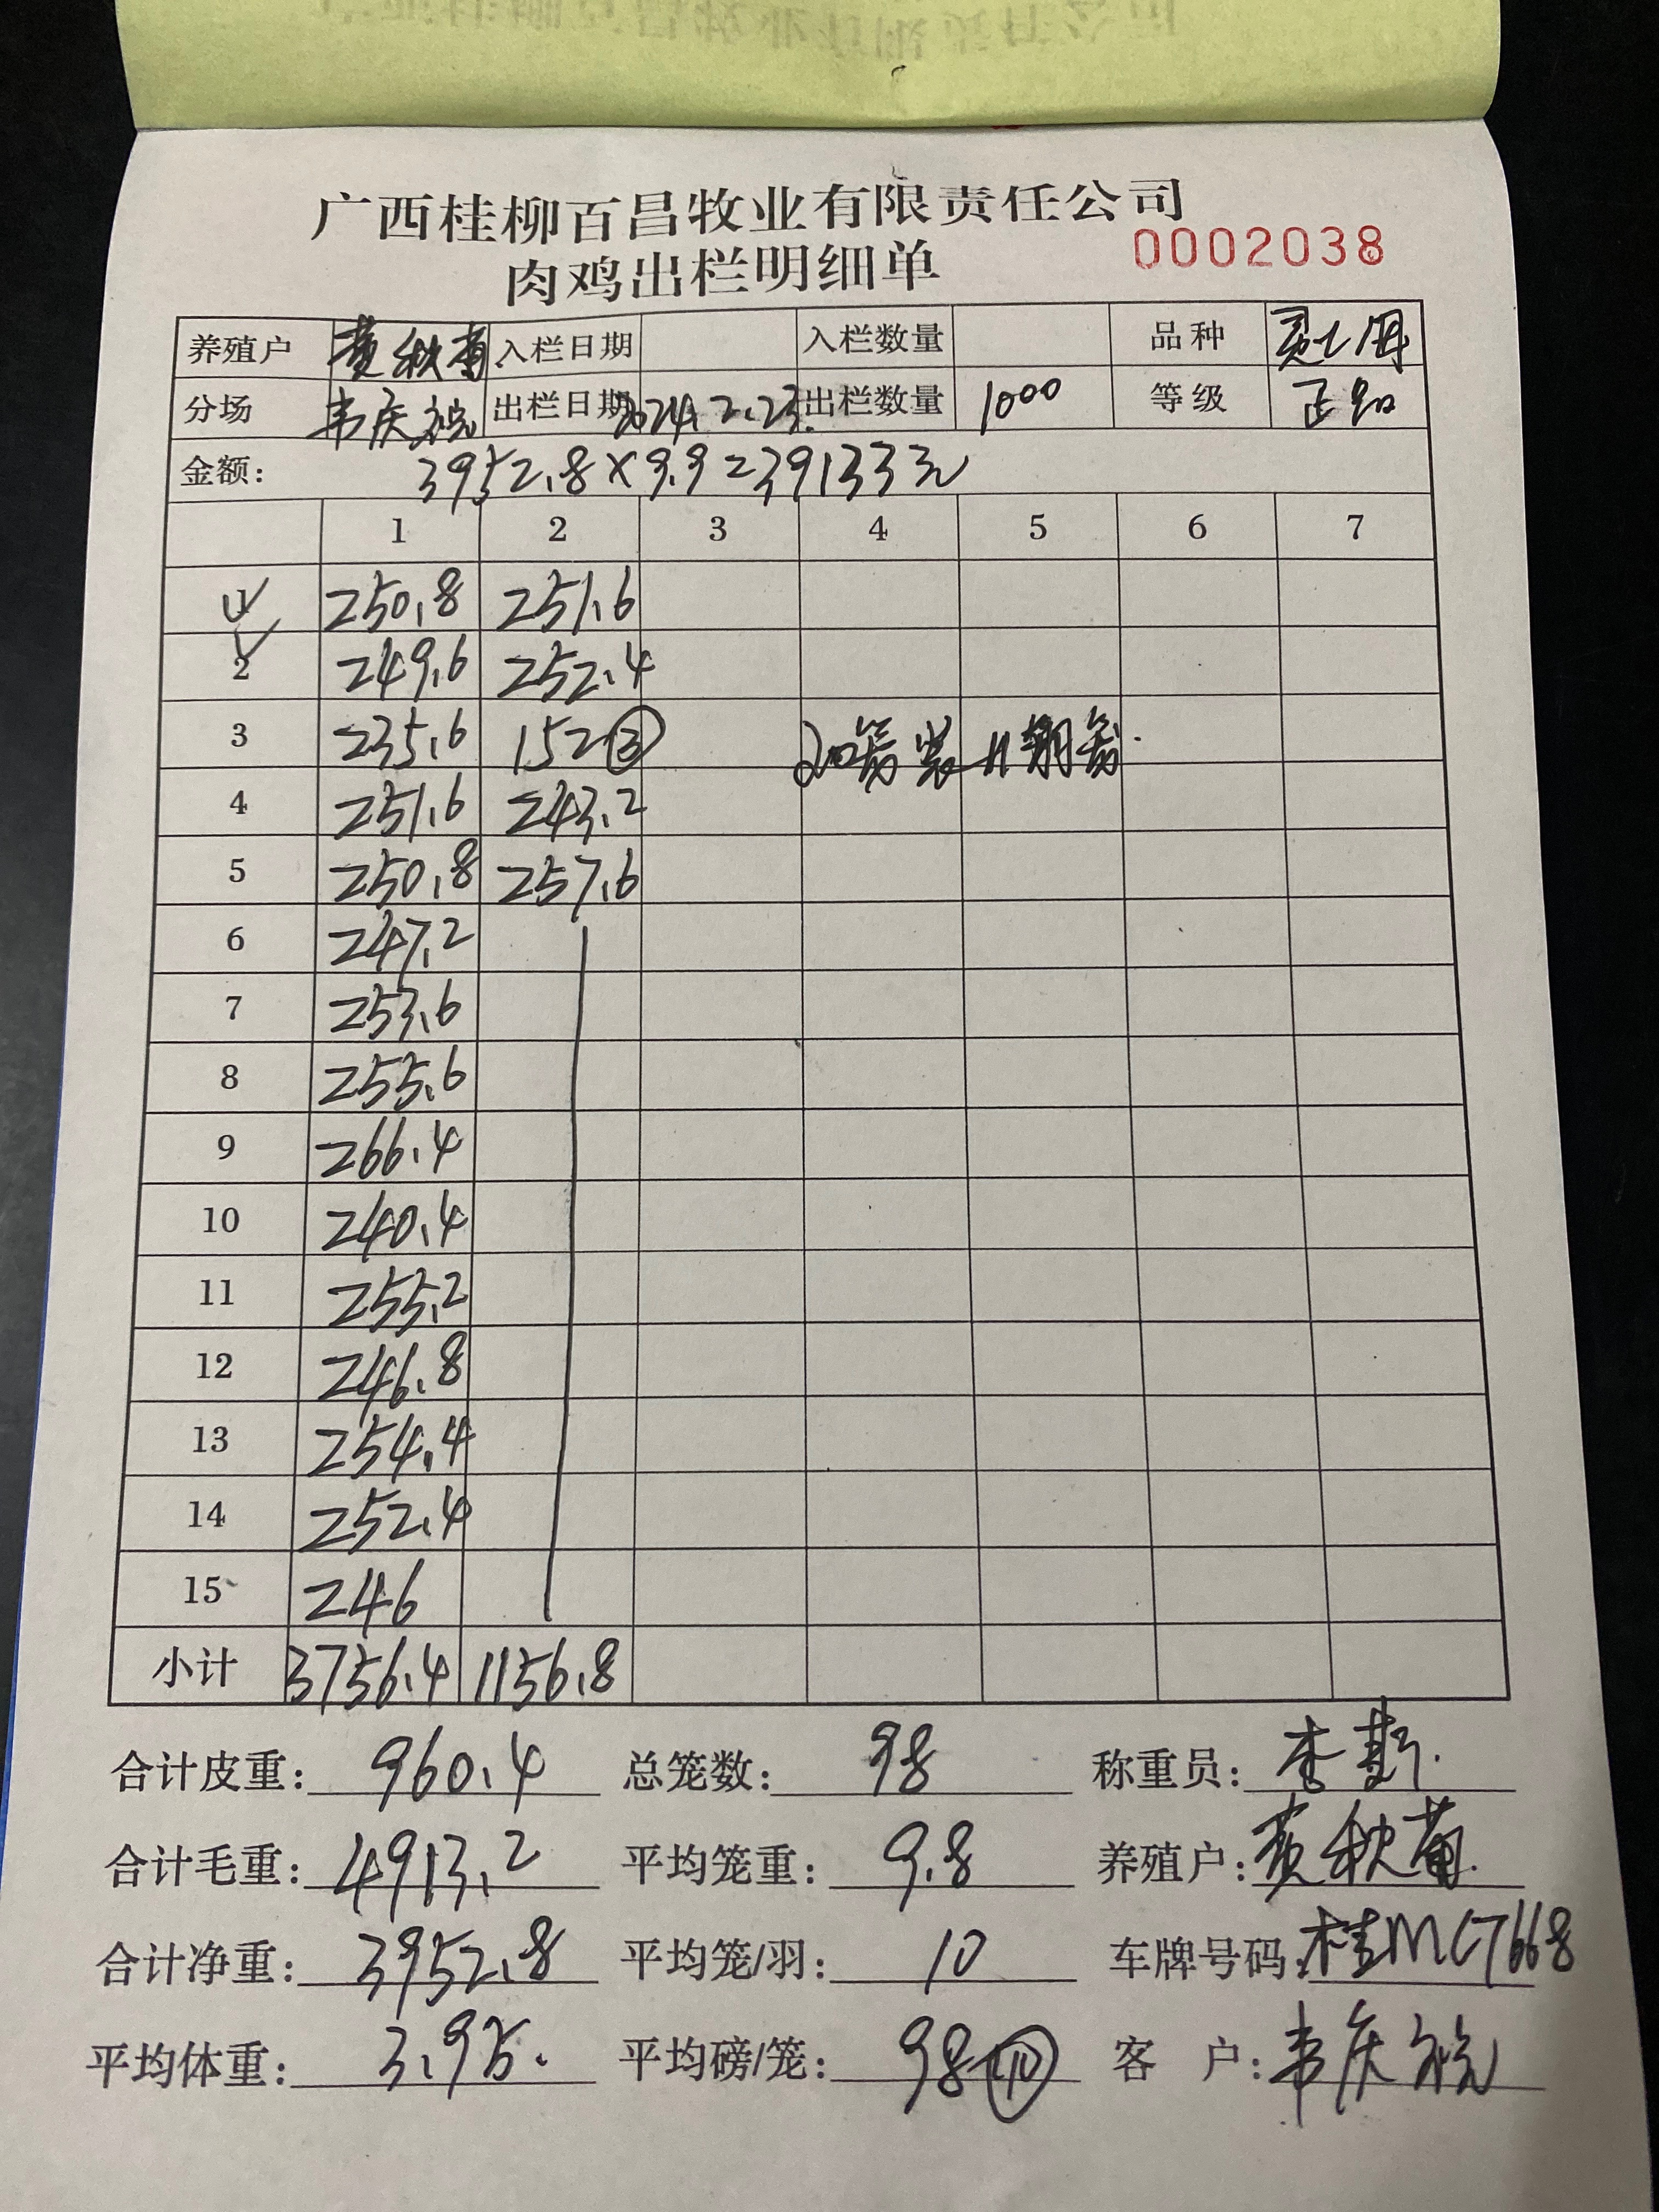 广西桂柳百昌牧业有限责任公司
0002038
肉鸡出栏明细单
养殖户 黄秋菊 入栏日期 入栏数量 品种
分场 韦庆 出栏日期 2024.2.23. 出栏数量 1000 等级 正品
金额: 3952.8×9.9=39133元
1 2 3 4 5 6 7
1 250.8 251.6
2 249.6 252.4
3 235.6 152③ 20 装11
4 251.6 243.2
5 250.8 257.6
6 247.2
7 253.6
8 255.6
9 266.4
10 240.4
11 255.2
12 246.8
13 254.4
14 252.4
15 246
小计 3756.4 1156.8
合计皮重: 960.4 总笼数: 98 称重员: 李
合计毛重: 4913.2 平均笼重: 9.8 养殖户: 黄秋菊.
合计净重: 3952.8 平均笼/羽: 10 车牌号码: 桂MC7668
平均体重: 3.95. 平均磅/笼: 98 ⑩ 客户: 韦庆